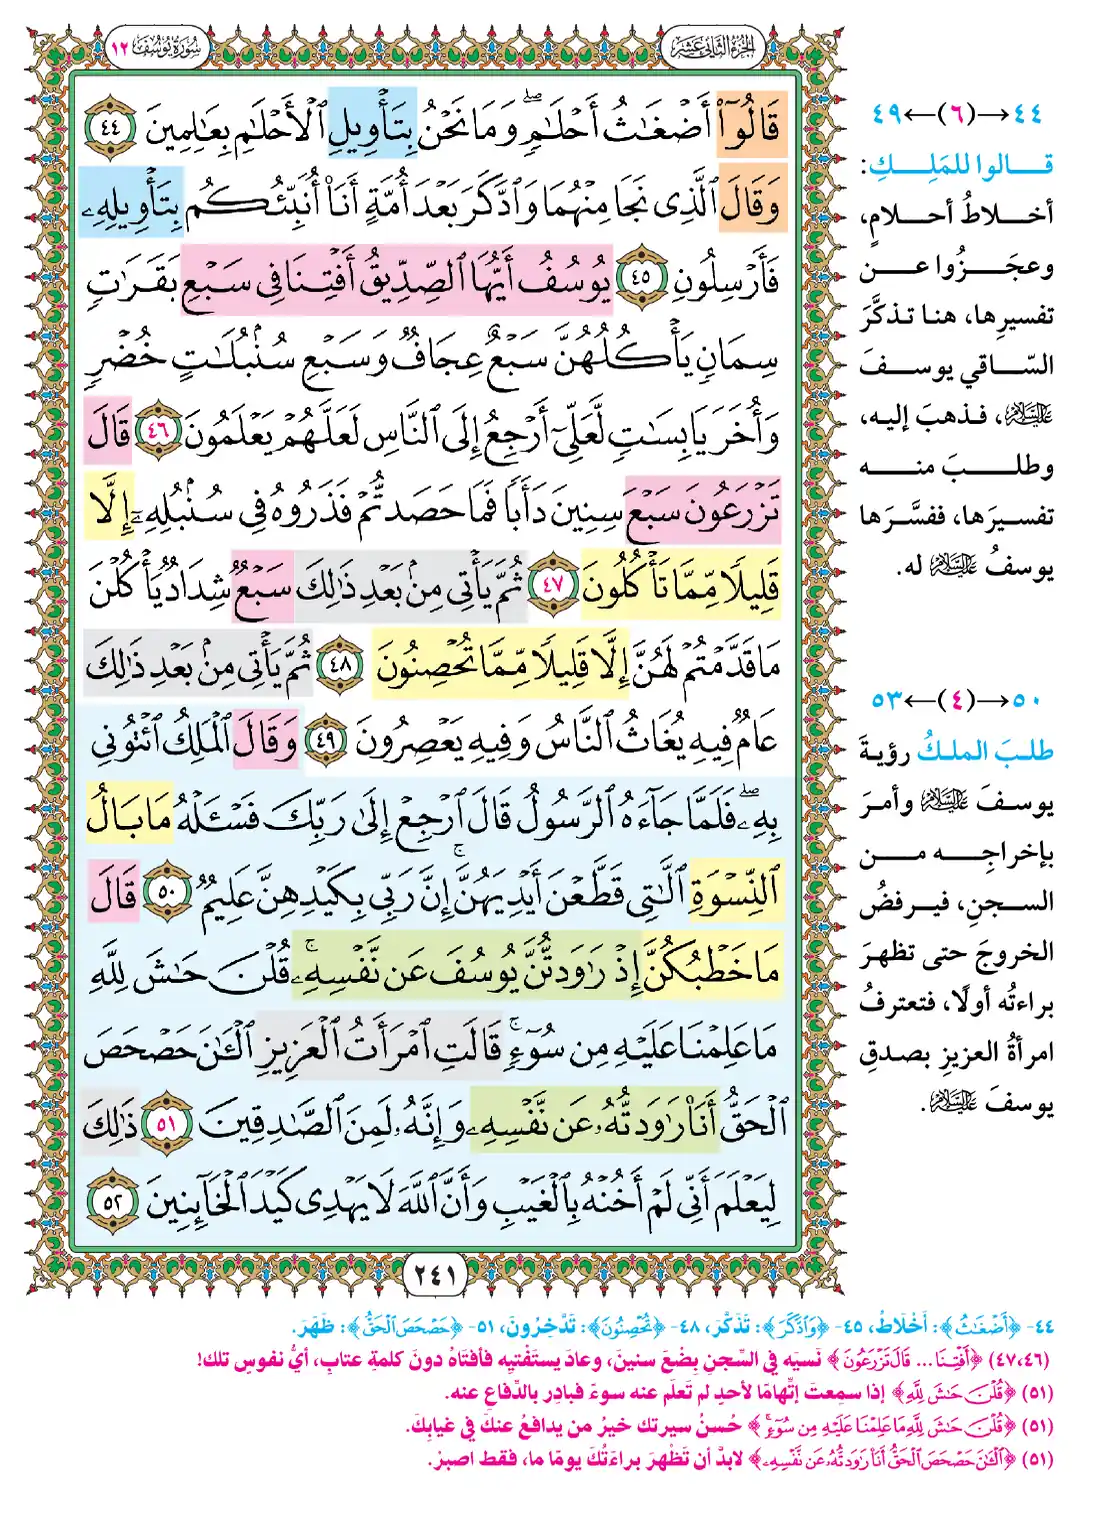 الجزء الثاني عشر
سورة يوسف ١٢
قَالُوٓا۟ أَضْغَـٰثُ أَحْلَـٰمٍۢ ۖ وَمَا نَحْنُ بِتَأْوِيلِ ٱلْأَحْلَـٰمِ بِعَـٰلِمِينَ ٤٤
وَقَالَ ٱلَّذِى نَجَا مِنْهُمَا وَٱدَّكَرَ بَعْدَ أُمَّةٍ أَنَا۠ أُنَبِّئُكُم بِتَأْوِيلِهِۦ
فَأَرْسِلُونِ ٤٥ يُوسُفُ أَيُّهَا ٱلصِّدِّيقُ أَفْتِنَا فِى سَبْعِ بَقَرَٰتٍۢ
سِمَانٍۢ يَأْكُلُهُنَّ سَبْعٌ عِجَافٌۭ وَسَبْعِ سُنۢبُلَـٰتٍ خُضْرٍۢ
وَأُخَرَ يَابِسَـٰتٍۢ لَّعَلِّىٓ أَرْجِعُ إِلَى ٱلنَّاسِ لَعَلَّهُمْ يَعْلَمُونَ ٤٦ قَالَ
تَزْرَعُونَ سَبْعَ سِنِينَ دَأَبًۭا فَمَا حَصَدتُّمْ فَذَرُوهُ فِى سُنۢبُلِهِۦٓ إِلَّا
قَلِيلًۭا مِّمَّا تَأْكُلُونَ ٤٧ ثُمَّ يَأْتِى مِنۢ بَعْدِ ذَٰلِكَ سَبْعٌۭ شِدَادٌۭ يَأْكُلْنَ
مَا قَدَّمْتُمْ لَهُنَّ إِلَّا قَلِيلًۭا مِّمَّا تُحْصِنُونَ ٤٨ ثُمَّ يَأْتِى مِنۢ بَعْدِ ذَٰلِكَ
عَامٌۭ فِيهِ يُغَاثُ ٱلنَّاسُ وَفِيهِ يَعْصِرُونَ ٤٩ وَقَالَ ٱلْمَلِكُ ٱئْتُونِى
بِهِۦ ۖ فَلَمَّا جَآءَهُ ٱلرَّسُولُ قَالَ ٱرْجِعْ إِلَىٰ رَبِّكَ فَسْـَٔلْهُ مَا بَالُ
ٱلنِّسْوَةِ ٱلَّـٰتِى قَطَّعْنَ أَيْدِيَهُنَّ ۚ إِنَّ رَبِّى بِكَيْدِهِنَّ عَلِيمٌۭ ٥٠ قَالَ
مَا خَطْبُكُنَّ إِذْ رَٰوَدتُّنَّ يُوسُفَ عَن نَّفْسِهِۦ ۚ قُلْنَ حَـٰشَ لِلَّهِ
مَا عَلِمْنَا عَلَيْهِ مِن سُوٓءٍۢ ۚ قَالَتِ ٱمْرَأَتُ ٱلْعَزِيزِ ٱلْـَٔـٰنَ حَصْحَصَ
ٱلْحَقُّ أَنَا۠ رَٰوَدتُّهُۥ عَن نَّفْسِهِۦ وَإِنَّهُۥ لَمِنَ ٱلصَّـٰدِقِينَ ٥١ ذَٰلِكَ
لِيَعْلَمَ أَنِّى لَمْ أَخُنْهُ بِٱلْغَيْبِ وَأَنَّ ٱللَّهَ لَا يَهْدِى كَيْدَ ٱلْخَآئِنِينَ ٥٢
٢٤١
٤٤→(٦)←٤٩
قالوا للمَلِكِ:
أخلاطُ أحلامٍ،
وعجَزُوا عن
تفسيرِها، هنا تذكَّرَ
السّاقي يوسفَ
عليه السلام، فذهبَ إليه،
وطلبَ منه
تفسيرَها، ففسَّرَها
يوسفُ عليه السلام له.
٥٠→(٤)←٥٣
طلبَ الملكُ رؤيةَ
يوسفَ عليه السلام وأمرَ
بإخراجِه من
السجنِ، فيرفضُ
الخروجَ حتى تظهرَ
براءتُه أولًا، فتعترفُ
امرأةُ العزيزِ بصدقِ
يوسفَ عليه السلام.
٤٤- ﴿أَضْغَـٰثُ﴾: أخْلَاطُ، ٤٥- ﴿وَٱدَّكَرَ﴾: تَذَكَّرَ، ٤٨- ﴿تُحْصِنُونَ﴾: تَدَّخِرُونَ، ٥١- ﴿حَصْحَصَ ٱلْحَقُّ﴾: ظَهَرَ.
(٤٧،٤٦) ﴿أَفْتِنَا ... قَالَ تَزْرَعُونَ﴾ نَسيَه في السِّجنِ بِضْعَ سنينَ، وعادَ يستَفْتيِه فأفتَاهُ دونَ كلمةِ عتابٍ، أيُّ نفوسٍ تلك!
(٥١) ﴿قُلْنَ حَـٰشَ لِلَّهِ﴾ إذا سمِعتَ اتِّهامًا لأحدٍ لم تَعلَم عنه سوءً فبادِر بالدِّفاعِ عنه.
(٥١) ﴿قُلْنَ حَـٰشَ لِلَّهِ مَا عَلِمْنَا عَلَيْهِ مِن سُوٓءٍ ۚ﴾ حُسنُ سيرتك خيرُ من يدافعُ عنكَ في غيابِكَ.
(٥١) ﴿ٱلْـَٔـٰنَ حَصْحَصَ ٱلْحَقُّ أَنَا۠ رَٰوَدتُّهُۥ عَن نَّفْسِهِۦ﴾ لابدَّ أن تَظْهرَ براءَتُكَ يومًا ما، فقط اصبرْ.